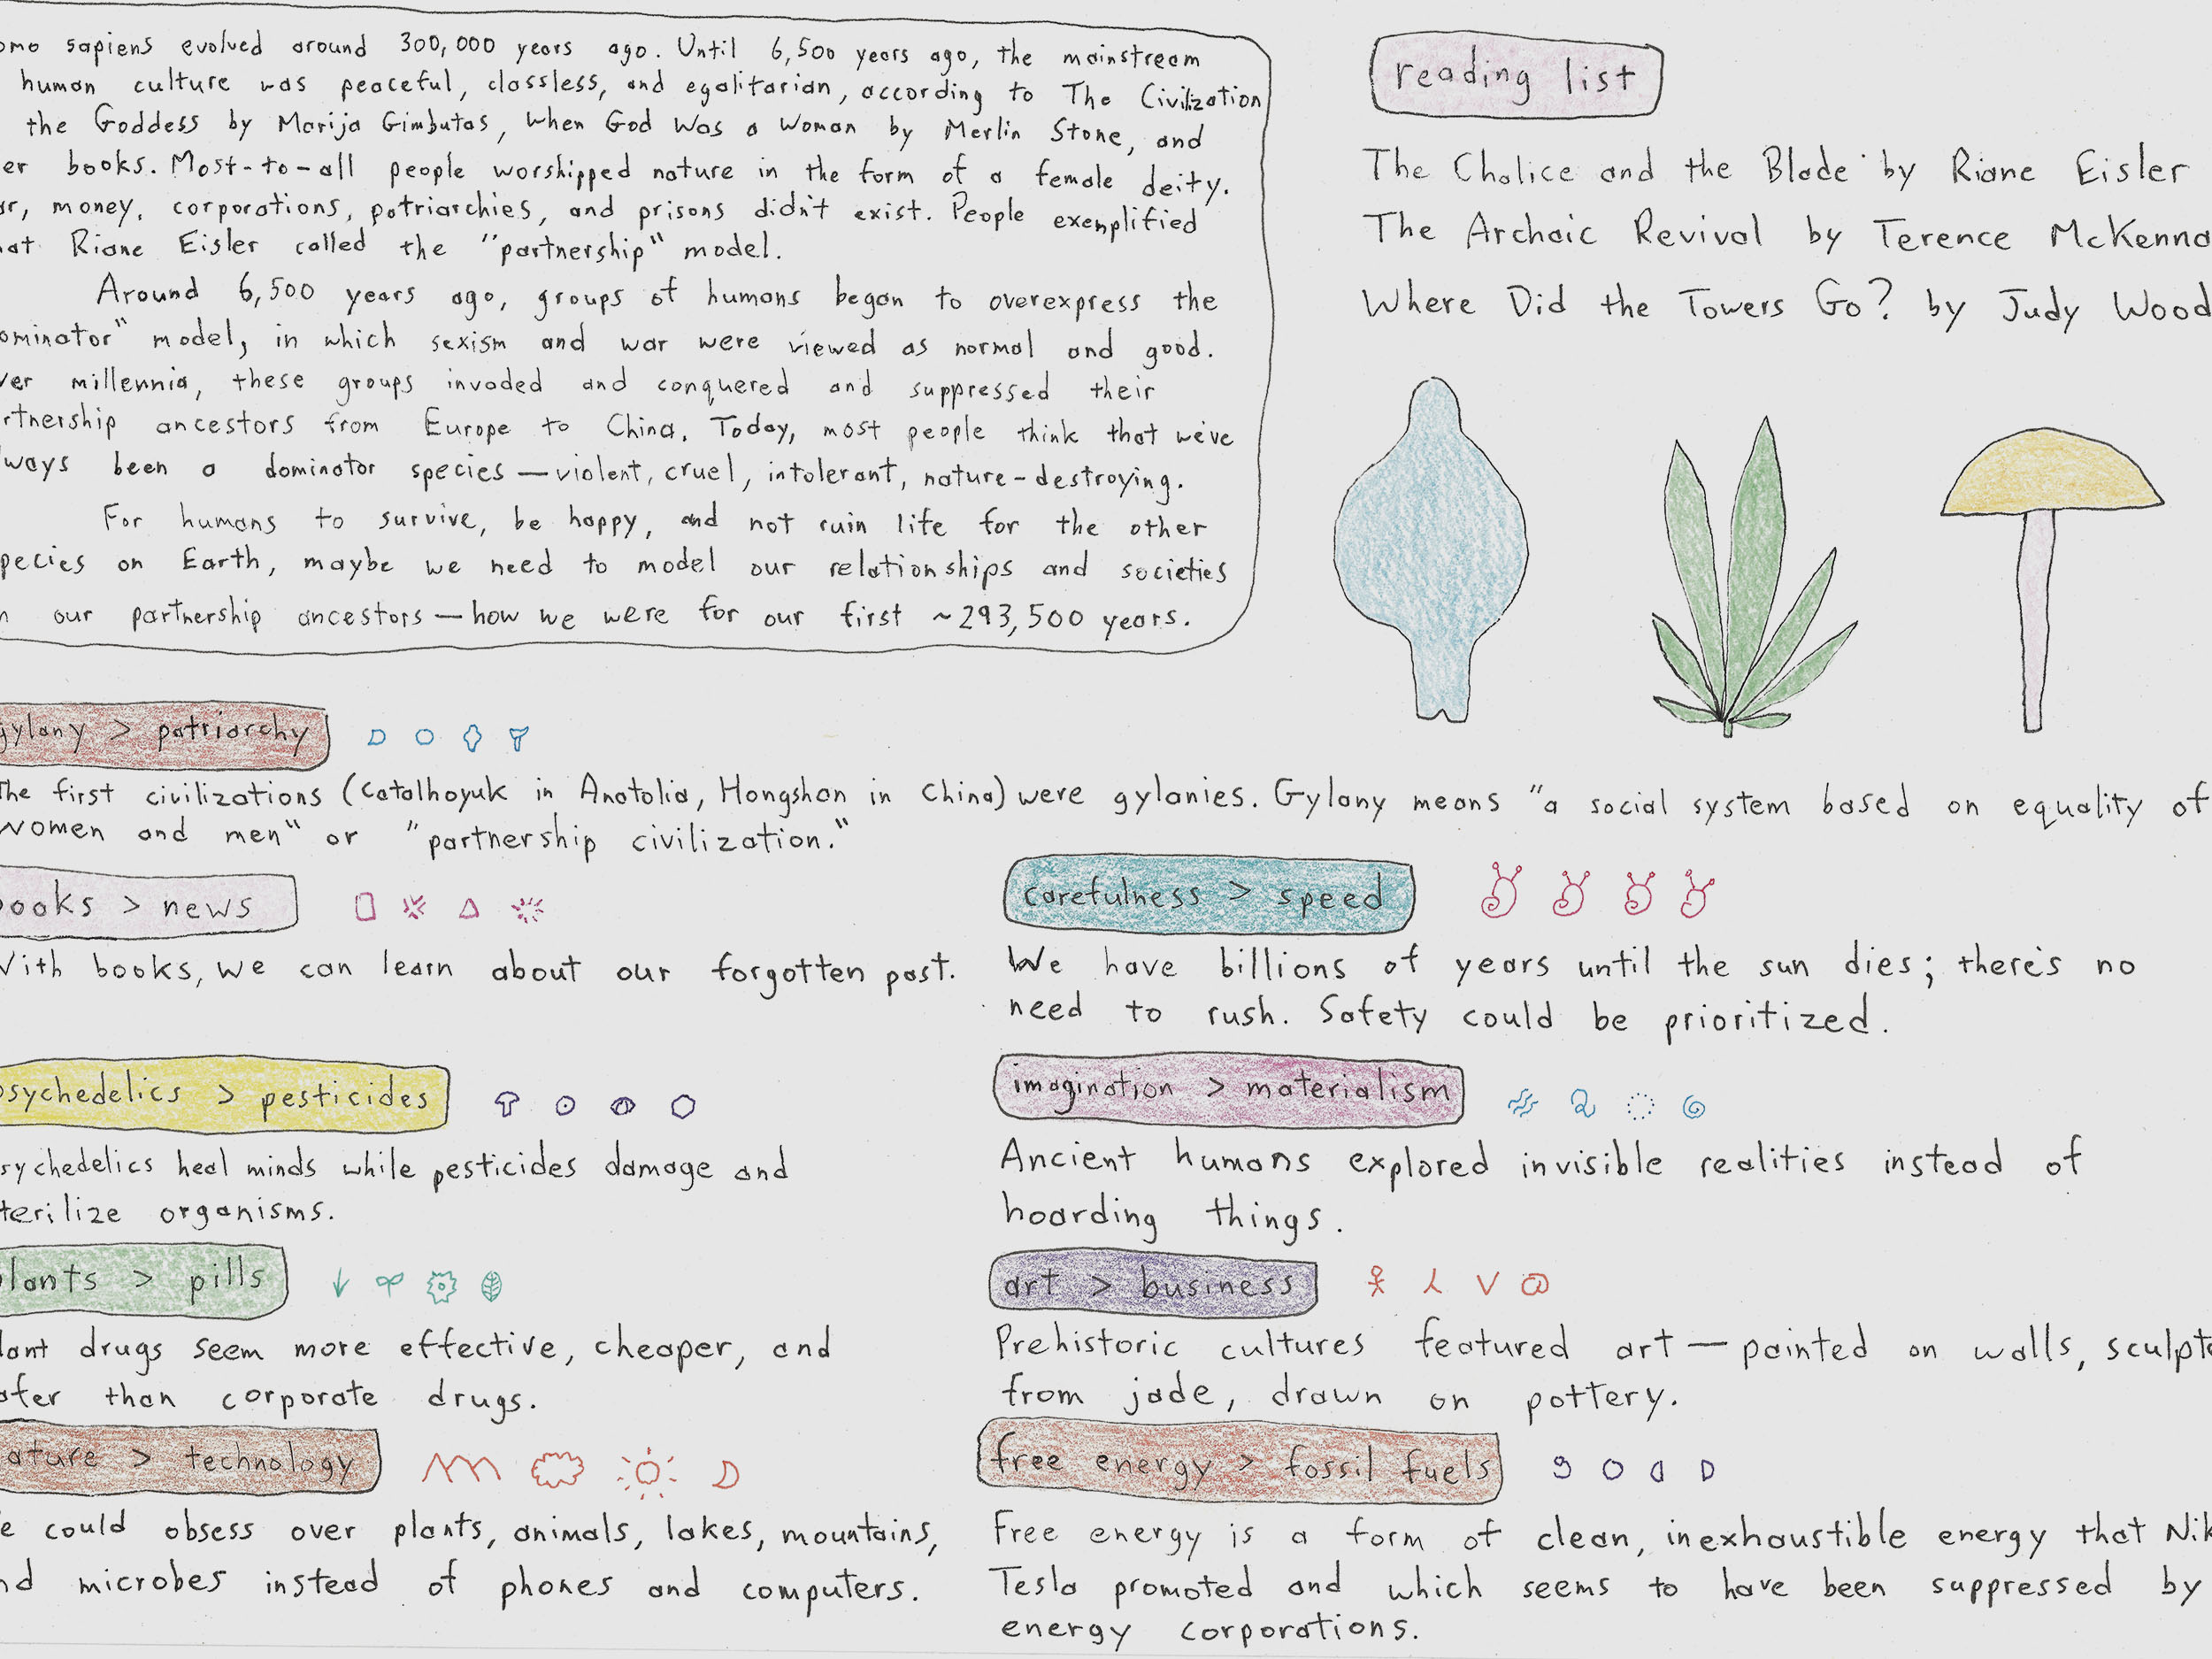 omo sapiens evolved around 300,000 years ago. Until 6,500 years ago, the mainstream
human culture was peaceful, classless, and egalitarian, according to The Civilization
the Goddess by Marija Gimbutas, When God Was a Woman by Merlin Stone, and
er books. Most-to-all people worshipped nature in the form of a female deity.
ar, money, corporations, patriarchies, and prisons didn't exist. People exemplified
hat Riane Eisler called the "partnership" model.
Around 6,500 years ago, groups of humans began to overexpress the
ominator" model, in which sexism and war were viewed as normal and good.
ver millennia, these groups invaded and conquered and suppressed their
rtnership ancestors from Europe to China. Today, most people think that we've
lways been a dominator species — violent, cruel, intolerant, nature-destroying.
For humans to survive, be happy, and not ruin life for the other
pecies on Earth, maybe we need to model our relationships and societies
n our partnership ancestors — how we were for our first ~293,500 years.
reading list
The Chalice and the Blade by Riane Eisler
The Archaic Revival by Terence McKenna
Where Did the Towers Go? by Judy Wood
gylany > patriarchy
The first civilizations (Catalhoyuk in Anatolia, Hongshan in China) were gylanies. Gylany means "a social system based on equality of
women and men" or "partnership civilization."
books > news
With books, we can learn about our forgotten past.
psychedelics > pesticides
sychedelics heal minds while pesticides damage and
terilize organisms.
plants > pills
lant drugs seem more effective, cheaper, and
afer than corporate drugs.
nature > technology
e could obsess over plants, animals, lakes, mountains,
nd microbes instead of phones and computers.
carefulness > speed
We have billions of years until the sun dies; there's no
need to rush. Safety could be prioritized.
imagination > materialism
Ancient humans explored invisible realities instead of
hoarding things.
art > business
Prehistoric cultures featured art — painted on walls, sculpte
from jade, drawn on pottery.
free energy > fossil fuels
Free energy is a form of clean, inexhaustible energy that Nik
Tesla promoted and which seems to have been suppressed by
energy corporations.